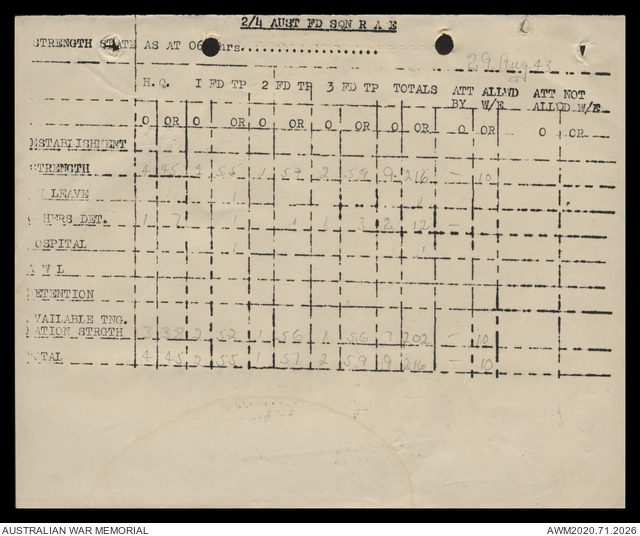 2/4 AUST FD SQN R A E
STRENGTH STATE AS AT 06 hrs....................
29 Aug 43
H. Q. 1 FD TP 2 FD TP 3 FD TP TOTALS ATT ALLWD ATT NOT
BY W/E ALLWD W/E
O OR O OR O OR O OR O OR O OR O OR
ESTABLISHMENT
STRENGTH 4 45 2 55 1 57 2 59 9 216 - 10
LEAVE 1 1
HERS DET. 1 7 1 1 3 2 12 -
OSPITAL 1 1
W L
ETENTION
VAILABLE TNG.
RATION STRGTH 3 38 2 52 1 56 1 56 7 202 - 10
TOTAL 4 45 2 55 1 57 2 59 9 216 - 10
AUSTRALIAN WAR MEMORIAL AWM2020.71.2026